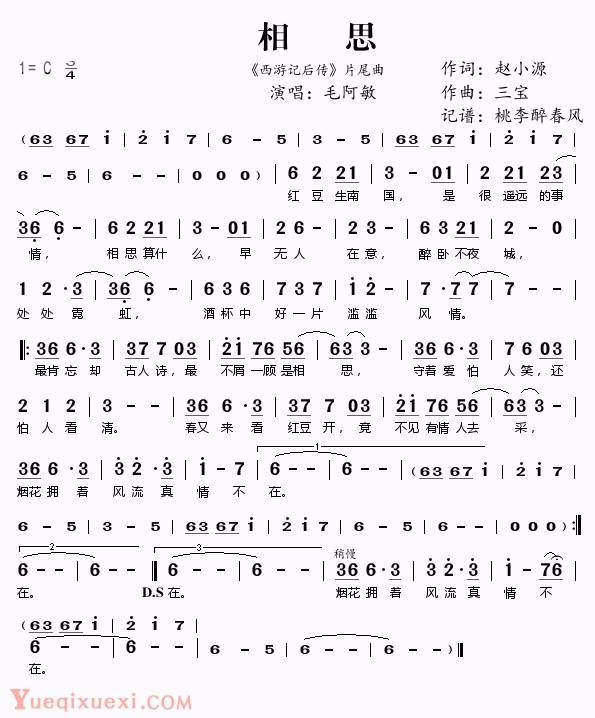 相 思
1=C 3/4 《西游记后传》片尾曲 作词：赵小源
演唱：毛阿敏 作曲：三宝
记谱：桃李醉春风
( 63 67 i | 2 i 7 | 6 - 5 | 3 - - | 63 67 i | 2 i 7 |
6 - 5 | 3 - - | 0 0 0 ) | 6 2 21 | 3 - 01 | 2 21 23 |
红 豆 生南 国， 是 很 遥远 的事
36 6 - | 6 2 21 | 3 - 01 | 2 6 - | 6 3 21 | 2 - 0 |
情， 相 思 算什 么， 早 无 人 在 意， 醉 卧 不夜 城，
1 2 ·3 | 36 6 - | 3 6 3 | 7 3 7 | i 2 - | 7 ·7 7 | 7 - - |
处 处 霓 虹， 酒 杯 中 好 一 片 滥 滥 风 情。
‖: 36 6 ·3 | 37 7 03 | 2i 76 56 | 63 3 - | 36 6 ·3 | 37 7 03 |
最肯 忘 却 古人 诗， 最 不屑 一顾 是相 思， 守着 爱 怕 人 笑， 还
2 1 2 | 3 - - | 36 6 ·3 | 37 7 03 | 2i 76 56 | 63 3 - |
怕 人 看 清。 春又 来 看 红豆 开， 竟 不见 有情 人去 采，
1
36 6 ·3 | 3 2 ·3 | i - 7 | 6 - - | 6 - - | ( 63 67 i | 2 i 7 |
烟花 拥 着 风 流 真 情 不 在。
6 - 5 | 3 - - | 63 67 i | 2 i 7 | 6 - 5 | 3 - - | 0 0 0 ) :‖
2 3 稍慢
6 - - | 6 - - ‖ 6 - - | 6 - - | 36 6 ·3 | 3 2 ·3 | i - 76 |
在。 D.S 在。 烟花 拥 着 风 流 真 情 不
( 63 67 i | 2 i 7 |
6 - - | 6 - - | 6 - - | 6 - - ) ‖
在。
Yueqixuexi.com